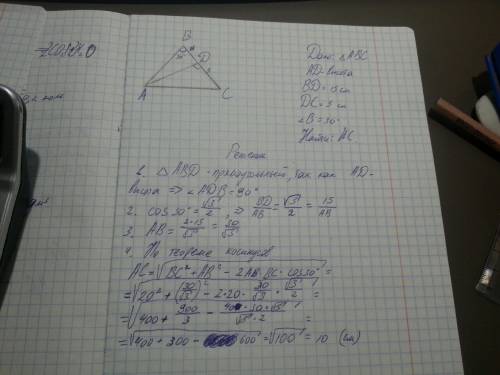 B
30°
D
A
C
Дано: △ABC
AD-высота
BD = 15 см
DC = 5 см
∠B = 30°
Найти: AC
Решение
1. △ABD - прямоугольный, так как AD-
высота => ∠ADB = 90°
2. cos 30° = √3/2, => BD/AB = √3/2 = 15/AB
3. AB = 2·15/√3 = 30/√3
4. По теореме косинусов
AC = √(BC² + AB² - 2AB·BC·cos30°) =
= √(20² + (30/√3)² - 2·20·30/√3·√3/2) =
= √(400 + 900/3 - 40·30·√3/√3·2) =
= √(400 + 300 - 600) = √100 = 10 (см)